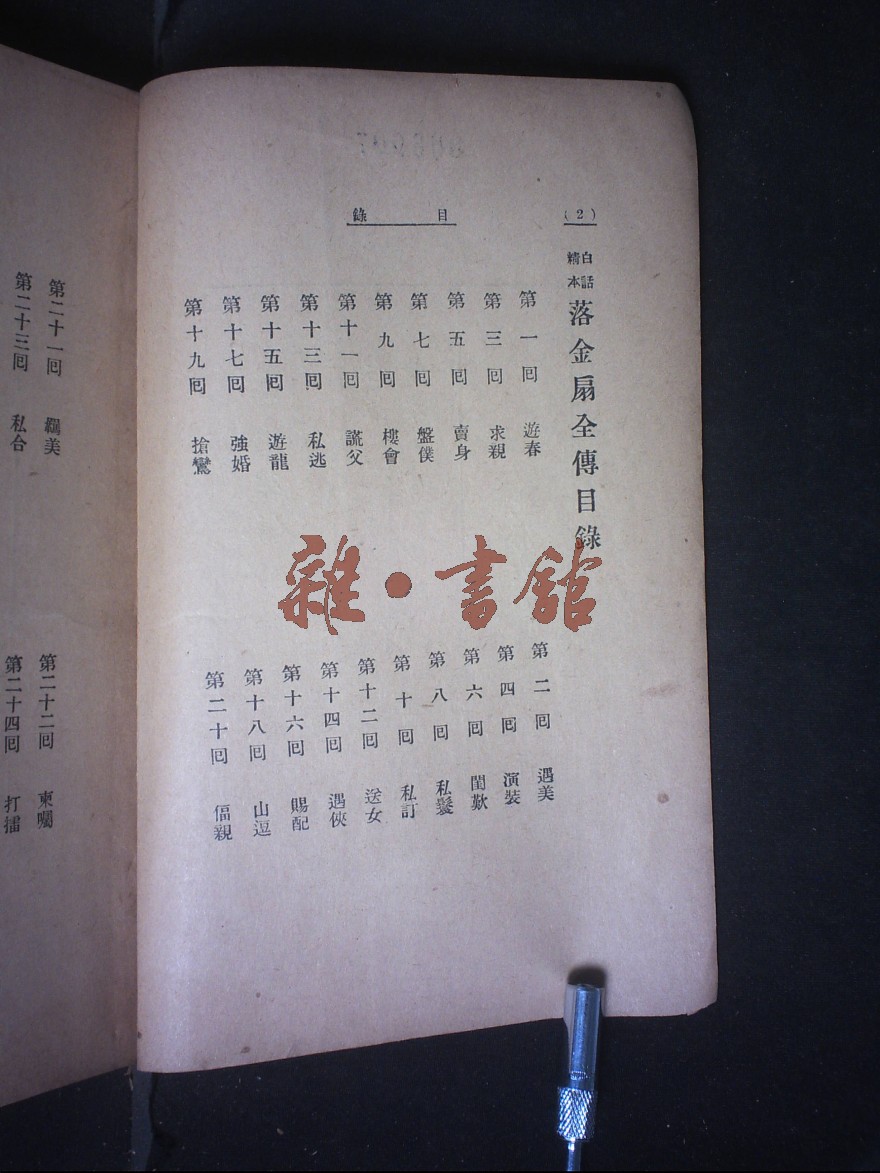 (2)
目錄
白話
精本
落金扇全傳目錄
第一回 遊春
第二回 遇美
第三回 求親
第四回 演裝
第五回 賣身
第六回 閨歎
第七回 盤僕
第八回 私鬟
第九回 樓會
第十回 私訂
第十一回 謊父
第十二回 送女
第十三回 私逃
第十四回 遇俠
第十五回 遊龍
第十六回 賜配
第十七回 強婚
第十八回 山逗
第十九回 搶鸞
第二十回 偪親
第二十一回 美
第二十二回 柬囑
第二十三回 私合
第二十四回 打擂
雜·書館